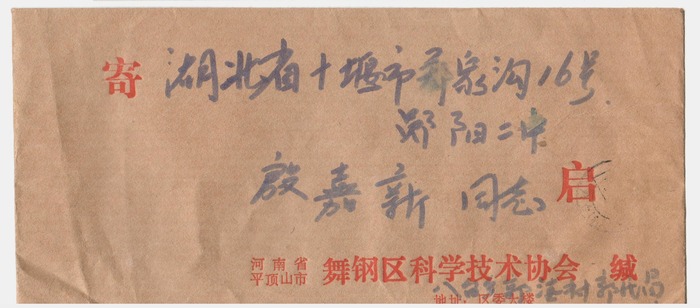 寄 湖北省十堰市郧泉沟16号
郧阳二中
殷嘉新 同志 启
河南省
平顶山市 舞钢区科学技术协会 缄
地址：区委大楼